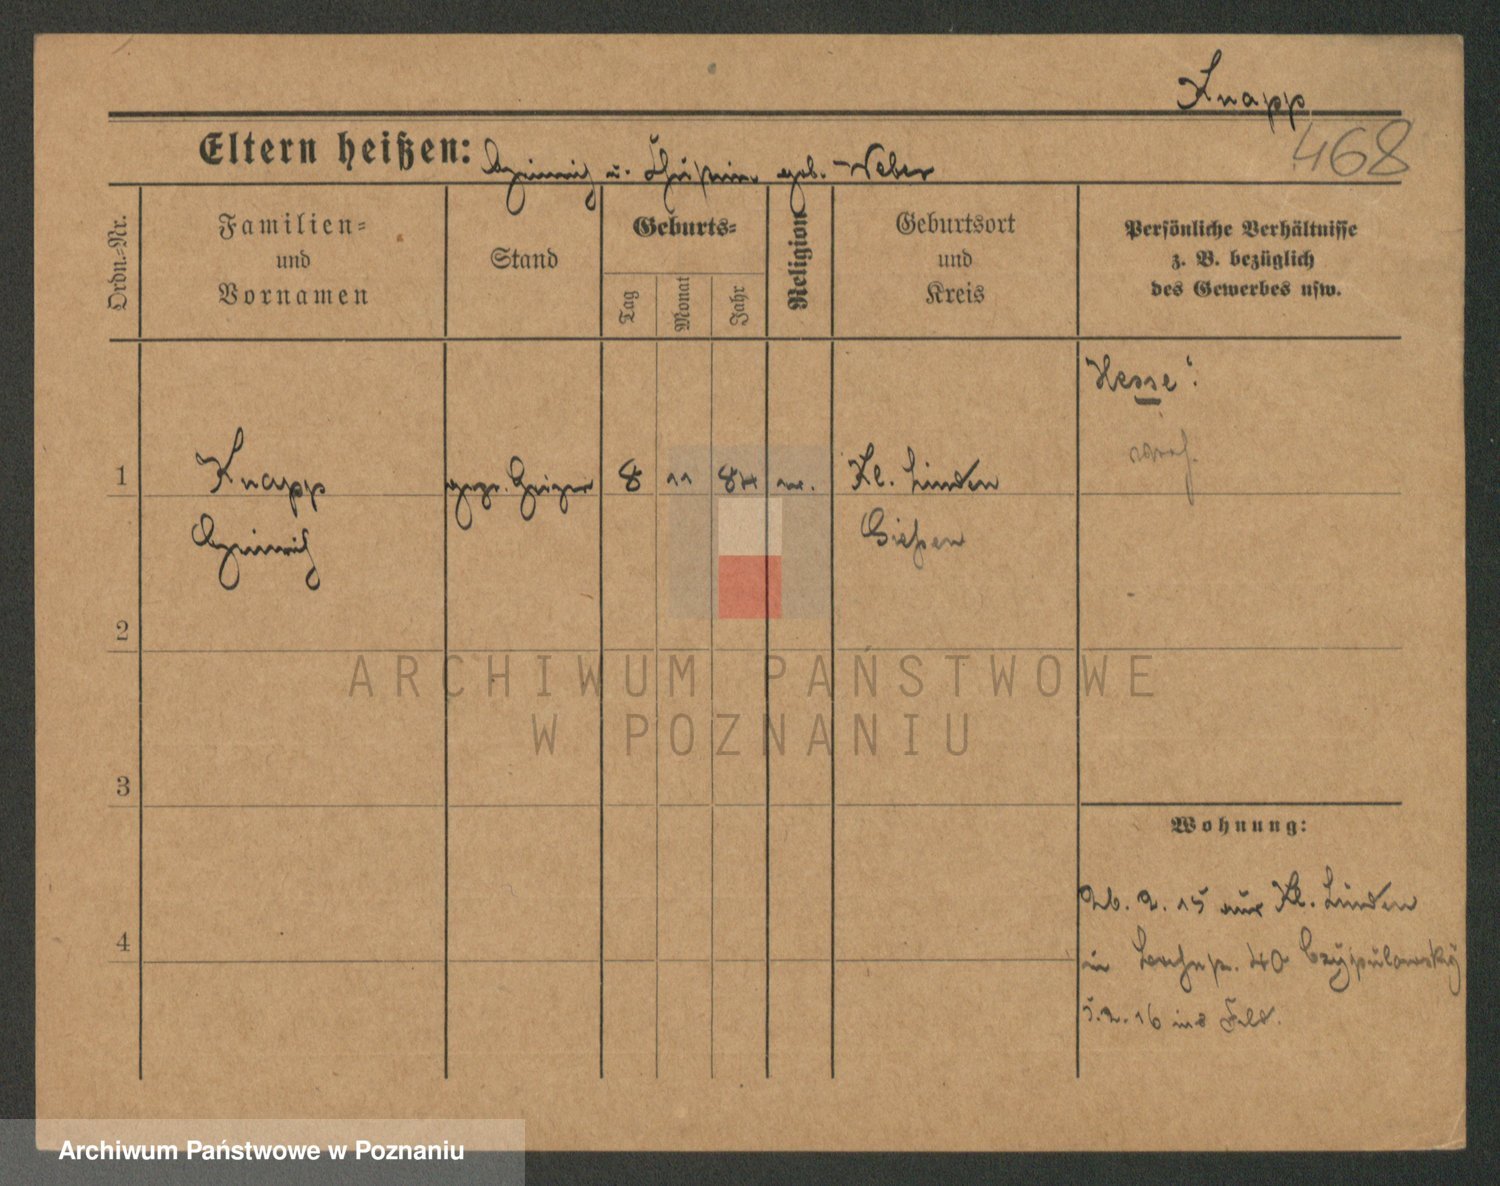 Knapp
468
Eltern heißen: Heinrich u. Christine geb. Weber
Ordn.-Nr.
Familien-
und
Vornamen
Stand
Geburts-
Tag
Monat
Jahr
Religion
Geburtsort
und
Kreis
Persönliche Verhältnisse
z. B. bezüglich
des Gewerbes usw.
Hesse:
1
Knapp
Heinrich
gepr. Heizer
8
11
84
ev.
Kl. Linden
Gießen
2
3
4
Wohnung:
26. 2. 15 aus Kl. Linden
in 40 Czypulowsky
5. 2. 16 ins Feld.
ARCHIWUM PAŃSTWOWE
W POZNANIU
Archiwum Państwowe w Poznaniu